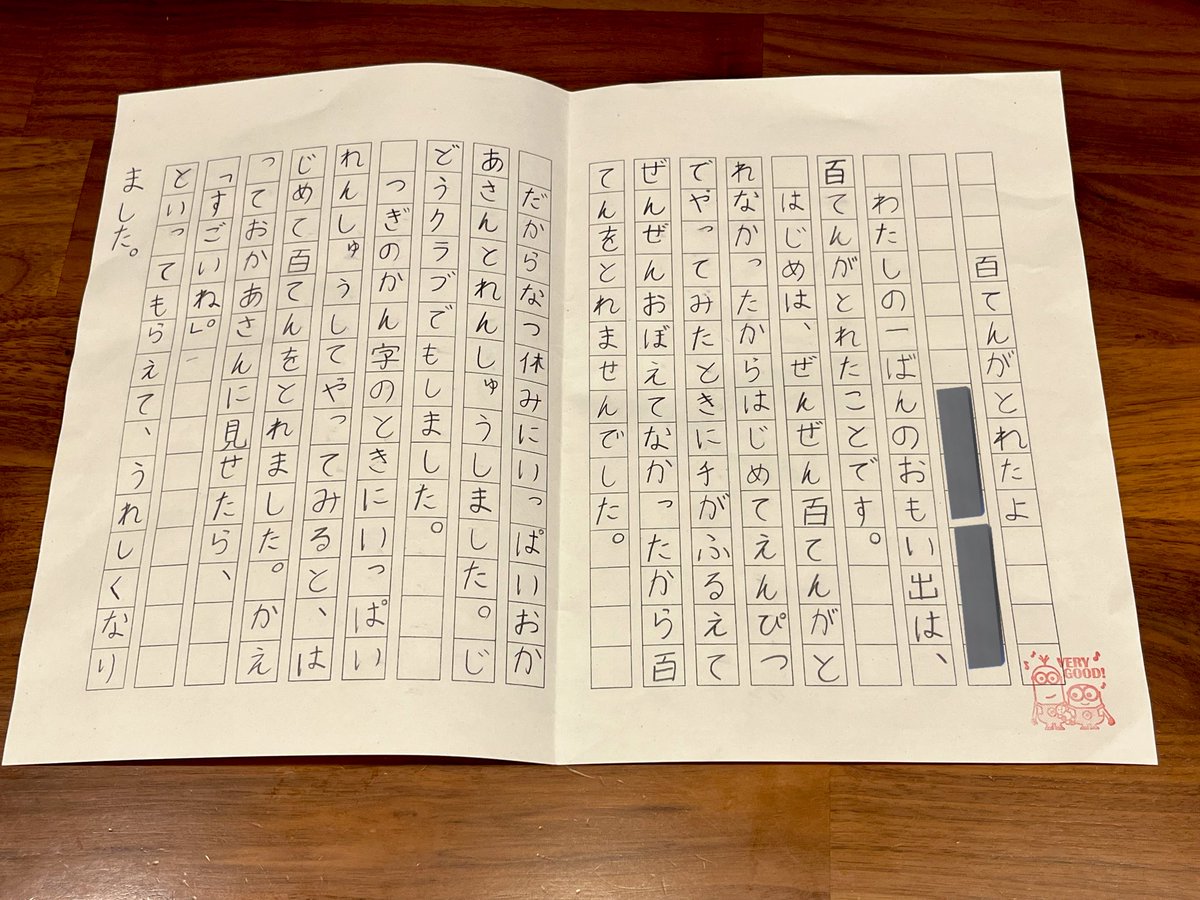 百てんがとれたよ
わたしの一ばんのおもい出は、
百てんがとれたことです。
はじめは、ぜんぜん百てんがと
れなかったからはじめてえんぴつ
でやってみたときにチがふるえて
ぜんぜんおぼえてなかったから百
てんをとれませんでした。
だからなつ休みにいっぱいおか
あさんとれんしゅうしました。じ
どうクラブでもしました。
つぎのかん字のときにいっぱい
れんしゅうしてやってみると、は
じめて百てんをとれました。かえ
っておかあさんに見せたら、
「すごいね。」
といってもらえて、うれしくなり
ました。
VERY
GOOD!